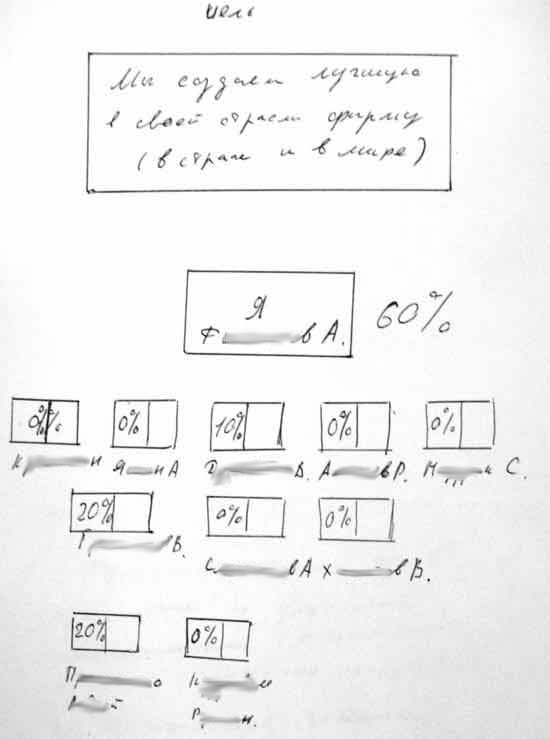 цель
Мы создаем лучшую
в своей отрасли фирму
(в стране и в мире)
Я
Ф в А. 60%
0% 0% 10% 0% 0%
К н Я н А В. А в Р. Н и С.
20% 0% 0%
Г В. С в А Х в В.
20% 0%
П о К и
Р н.